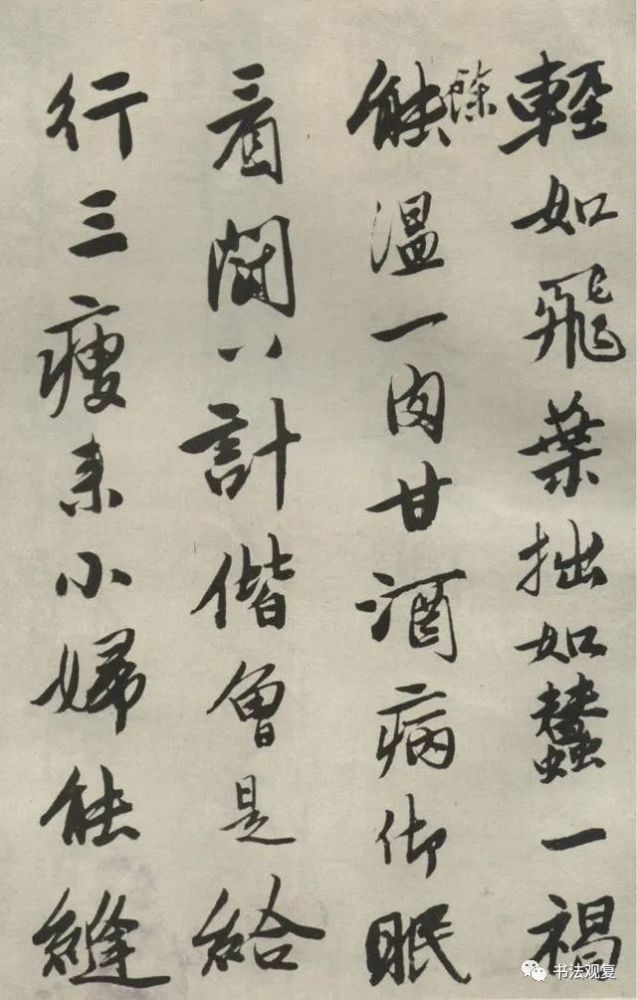 輕如飛葉拙如蠶一褐
餘
能溫一肉甘酒病仰眠
看鬪八計偕曾是給
行三瘦來小婦能縫
书法观复